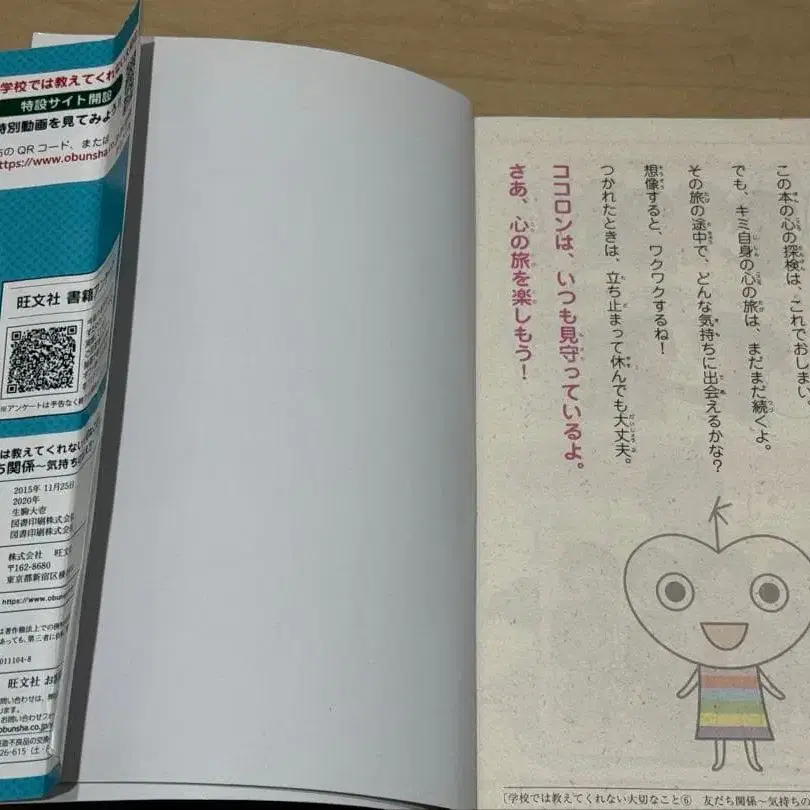 学校では教えてくれ
特設サイト開設
特別動画を見てみよう
のQRコード、または
https://www.obunsha.
旺文社 書籍
※アンケートは予告なく終
は教えてくれない
ち関係～気持ち
2015年 11月25日
2020年
生駒大壱
図書印刷株式会
図書印刷株式会
株式会社 旺文
〒162-8680
東京都新宿区横
https://www.obun
は著作権法上での例外
あっても、第三者に
011104-8
旺文社 お
問い合わせは、
ます。
お問い合わせフォ
obunsha.co.jp/
造不良品の交換
26-615（土・
この本の心の探検は、これでおしまい。
でも、キミ自身の心の旅は、まだまだ続くよ。
その旅の途中で、どんな気持ちに出会えるかな？
想像すると、ワクワクするね！
つかれたときは、立ち止まって休んでも大丈夫。
ココロンは、いつも見守っているよ。
さあ、心の旅を楽しもう！
［学校では教えてくれない大切なこと⑥ 友だち関係～気持ちの